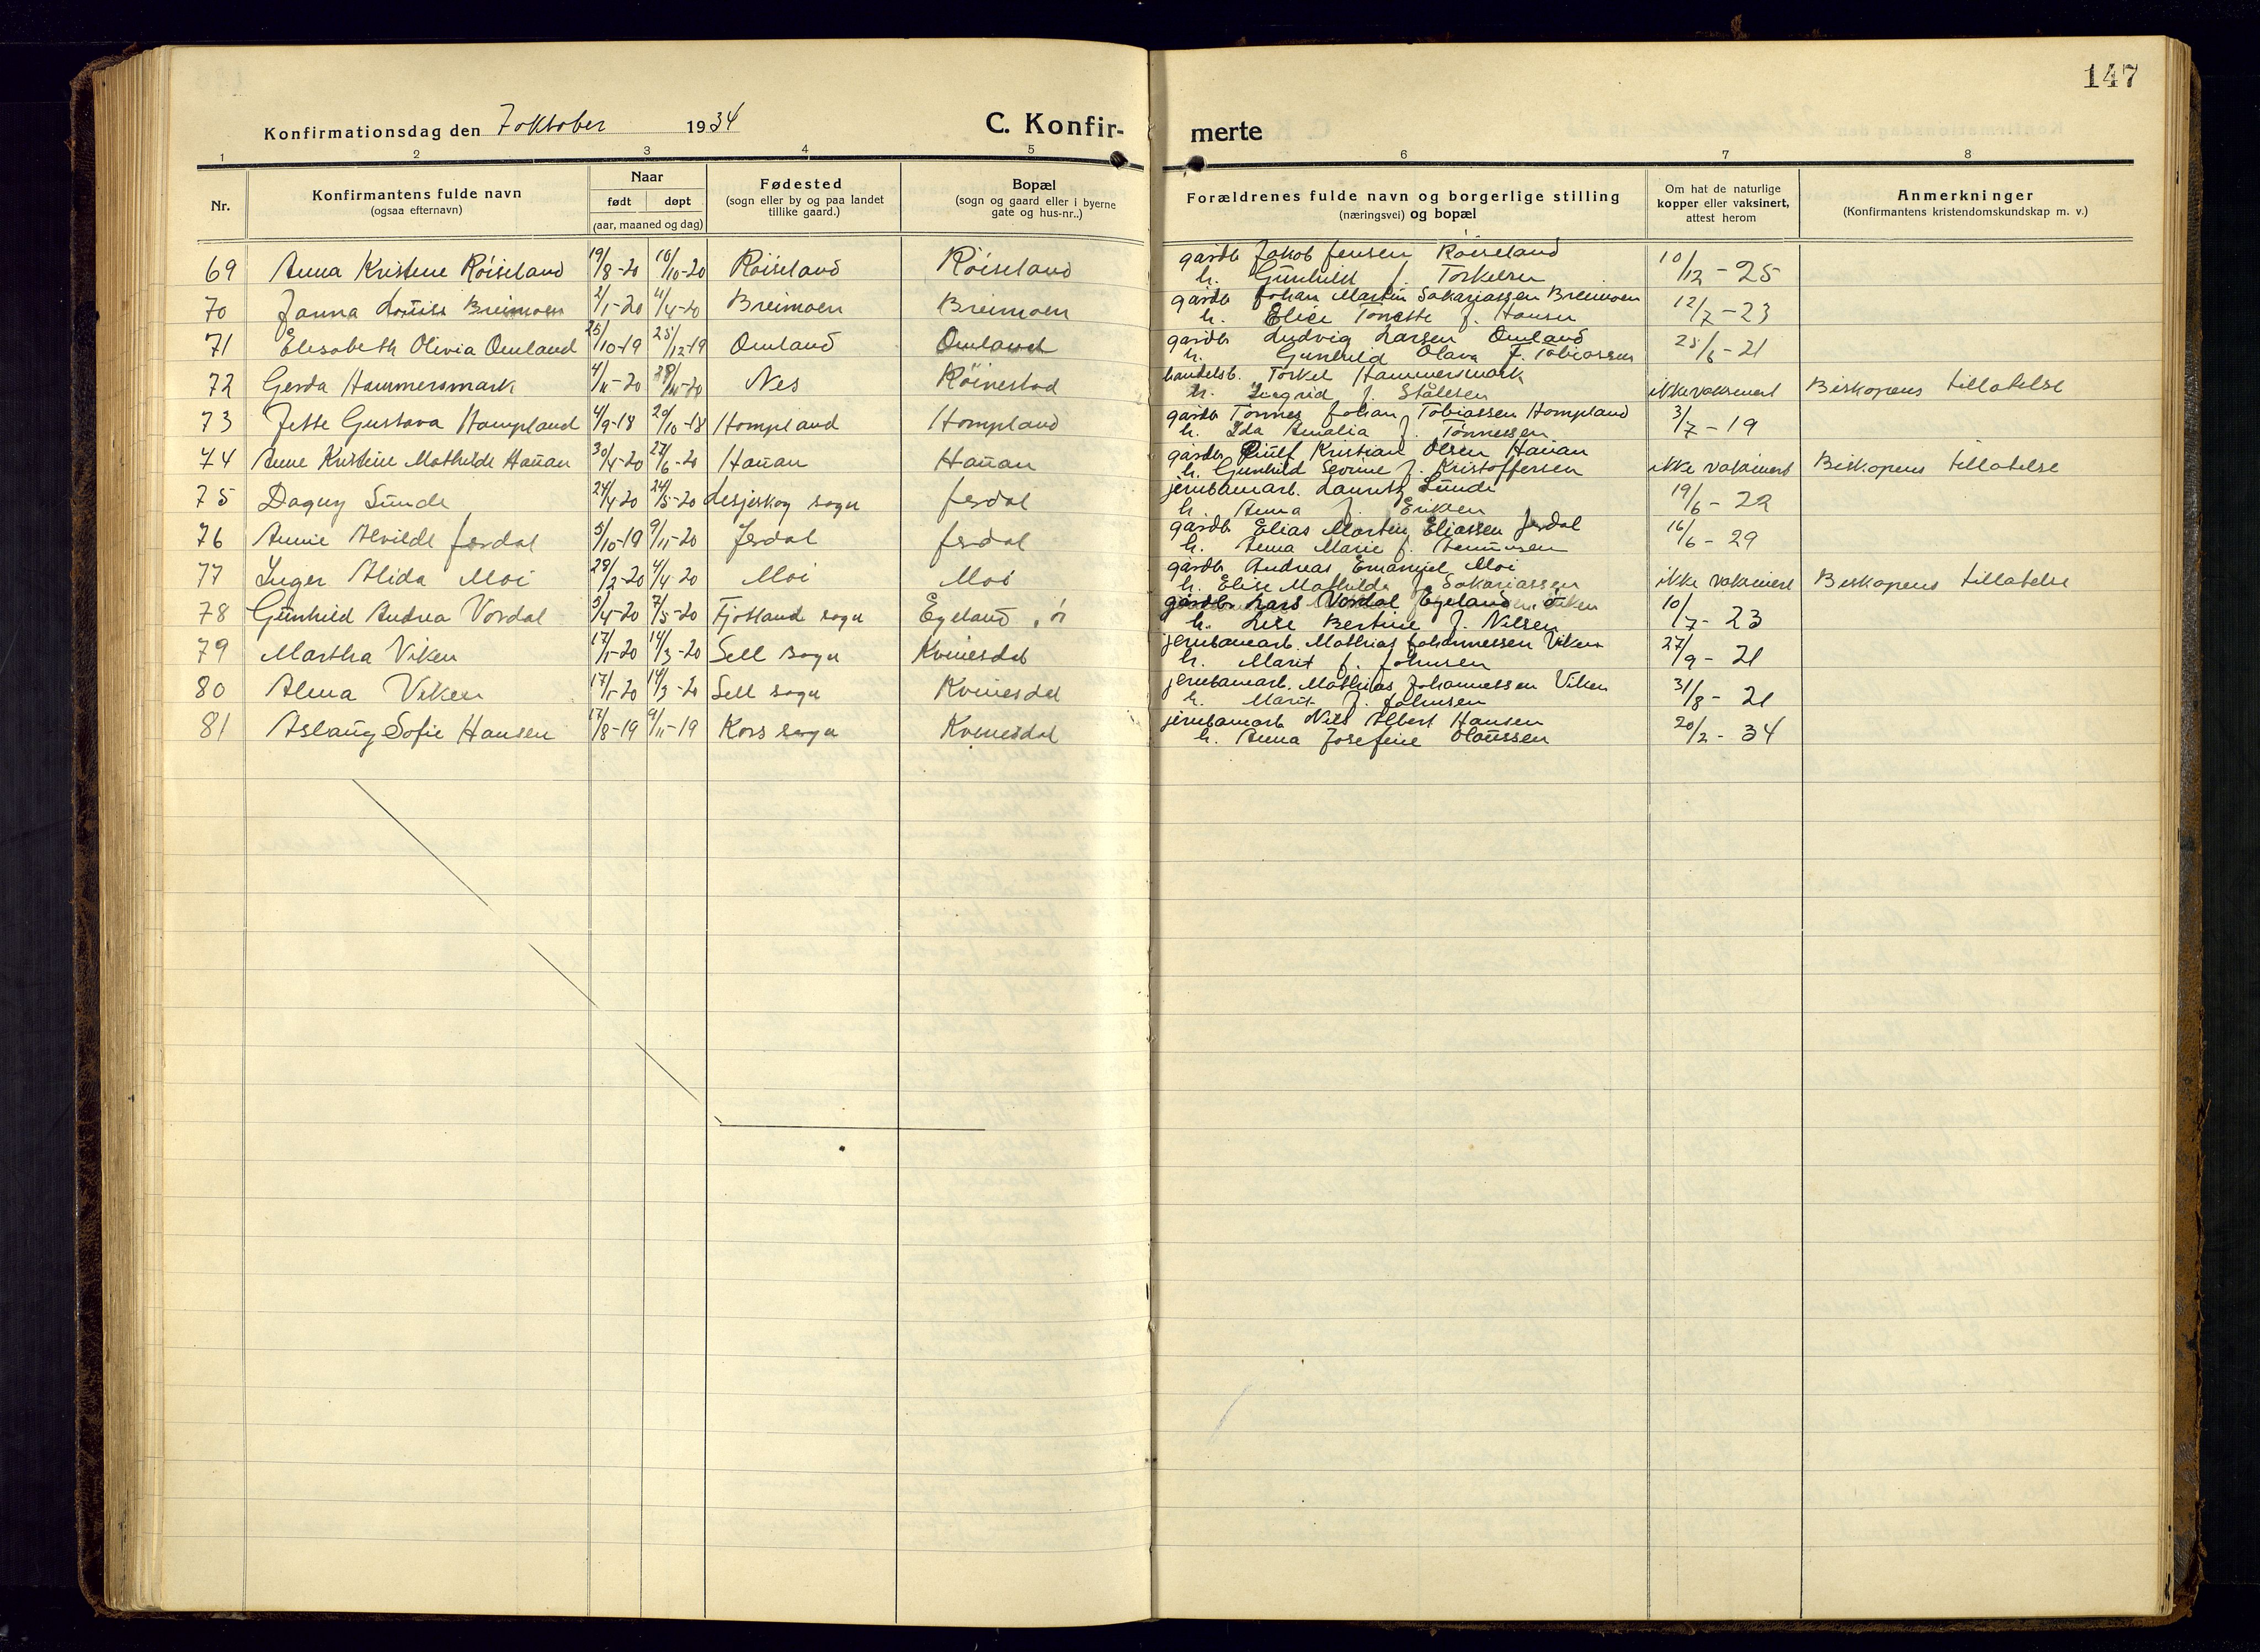 147
Konfirmationsdag den 7 oktober 1934
C. Konfirmerte
1 2 3 4 5 6 7 8
Nr.
Konfirmantens fulde navn
(ogsaa efternavn)
Naar
født døpt
(aar, maaned og dag)
Fødested
(sogn eller by og paa landet
tillike gaard.)
Bopæl
(sogn og gaard eller i byerne
gate og hus-nr..)
Forældrenes fulde navn og borgerlige stilling
(næringsvei) og bopæl
Om hat de naturlige
kopper eller vaksinert,
attest herom
Anmerkninger
(Konfirmantens kristendomskundskap m. v.)
69 Anna Kristine Röiseland 19/8-20 10/10-20 Röiseland Röiseland gårdb. Jakob Jensen Röiseland 10/12-25
h. Gunhild f. Torkelsen
70 Janna Louise Breimoen 2/1-20 4/4-20 Breimoen Breimoen gårdb. Johan Martin Sakariassen Breimoen 12/7-23
h. Elise Tonette f. Hansen
71 Elisabeth Olivia Omland 25/10-19 25/12-19 Omland Omland gårdb. Ludvig Larsen Omland 25/6-21
h. Gunhild Olava f. Tobiassen
72 Gerda Hammersmark 4/11-20 Nes Röinestad handelsb. Torkel Hammersmark
h. Ingrid f. Stålesen ikke vaksinert Biskopens tillatelse
73 Jette Gustava Hompland 4/9-18 20/10-18 Hompland Hompland gårdb. Tönnes Johan Tobiassen Hompland 3/7-19
h. Ida Amalia f. Tönnessen
74 Anne Kristine Mathilde Hauan 30/4-20 27/6-20 Hauan Hauan gårdb. Kristian Olsen Hauan
h. Gunhild Severine f. Kristoffersen ikke vaksinert Biskopens tillatelse
75 Dagny Sunde 24/4-20 24/5-20 Lesjeskog sogn Jerdal jernbanearb. Lauritz Sunde 19/6-22
h. Anna f. Eriksen
76 Annie Alvilde Jerdal 5/10-19 9/11-20 Jerdal Jerdal gårdb. Elias Martin Eliassen Jerdal 16/6-29
h. Anna Marie f.
77 Inger Alida Moi 28/2-20 4/4-20 Moi Moi gårdb. Andreas Emanuel Moi
h. Elise Mathilde f. Sakariassen ikke vaksinert Biskopens tillatelse
78 Gunhild Andrea Vordal 5/4-20 7/5-20 Fjotland sogn Egeland, ö. gårdb. Lars Vordal Egeland, ö. 10/7-23
h. Lise Bertine f. Nilsen
79 Martha Viken 17/1-20 14/3-20 Sell sogn Kvinesdal jernbanearb. Mathias Johannessen Viken 27/9-21
h. Marit f. Johnsen
80 Alma Viken 17/1-20 14/3-20 Sell sogn Kvinesdal jernbanearb. Mathias Johannessen Viken 31/8-21
h. Marit f. Johnsen
81 Aslaug Sofie Hansen 17/8-19 9/11-19 Kors sogn Kvinesdal jernbanearb. Nils Albert Hansen 20/2-34
h. Anna Josefine Olaussen